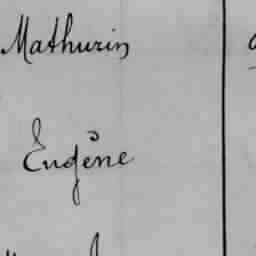 Mathurin
Eugène